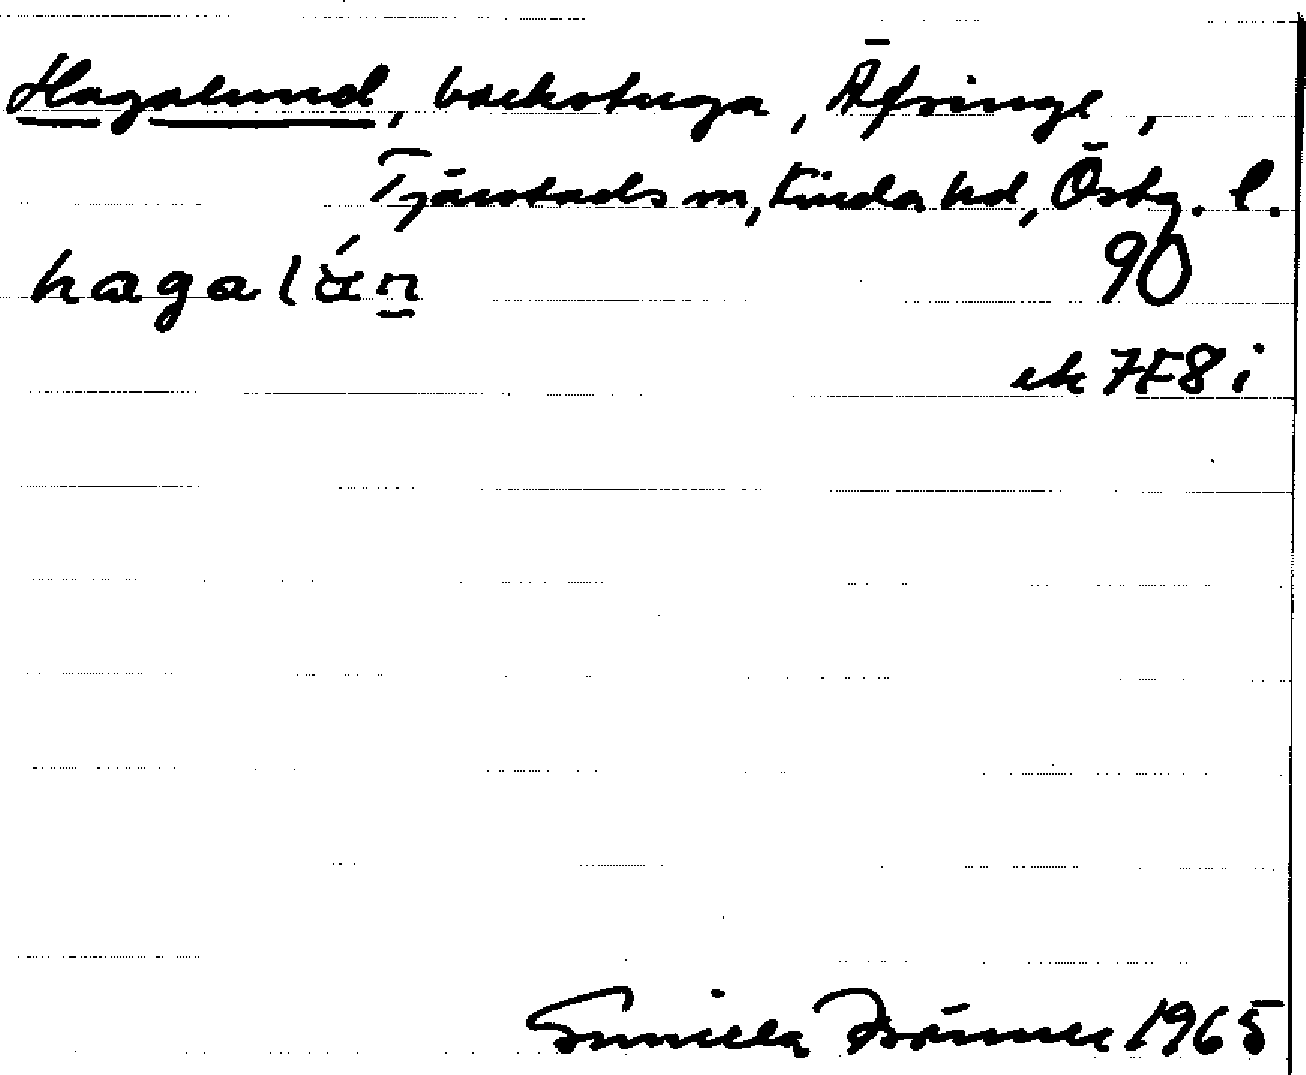 Hagalund, backstuga, Äfsinge,
Tjärstads sn, Kinda hd, Östg. l.
hagalán 90
ek 7F8i
Gunilla 1965